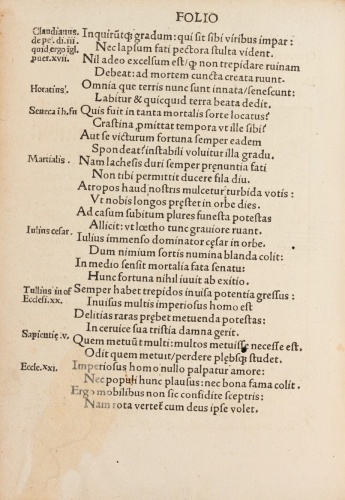 FOLIO
Claudianus. Inquirūtq; gradum: qui sit sibi viribus impar:
de pe. di. iii Nec lapsum fati pectora stulta vident.
quid ergo igl. Nil adeo excelsum est/ꝙ non trepidare ruinam
puer. xvii. Debeat: ad mortem cuncta creata ruunt.
Omnia que terris nunc sunt innata/senescunt:
Horatius. Labitur & quicquid terra beata dedit.
Seneca ī h. fu Quis fuit in tanta mortalis sorte locatus?
Crastina ꝓmittat tempora vt ille sibi?
Aut se victurum fortuna semper eadem
Spondeat? instabili voluitur illa gradu.
Martialis. Nam lachesis duri semper prenuntia fati
Non tibi permittit ducere fila diu.
Atropos haud nostris mulcetur turbida votis:
Vt nobis longos prēstet in orbe dies.
Ad casum subitum plures funesta potestas
Allicit: vt lœtho tunc grauiore ruant.
Iulius cesar. Iulius immenso dominator cęsar in orbe.
Dum nimium sortis numina blanda colit:
In medio sensit mortalia fata senatu:
Hunc fortuna nihil iuuit ab exitio.
Tullius in of Semper habet trepidos inuisa potentia gressus:
Ecclesi. xx. Inuisus multis imperiosus homo est
Delitias raras prębet metuenda potestas:
In ceruice sua tristia damna gerit.
Sapientię .v. Quem metuūt multi: multos metuisse necesse est.
Odit quem metuit/perdere plebsq; studet.
Eccle. xxi. Imperiosus homo nullo palpatur amore:
Nec populi hunc plausus: nec bona fama colit.
Ergo mobilibus non sic confidite sceptris:
Nam rota vertet cum deus ipse volet.